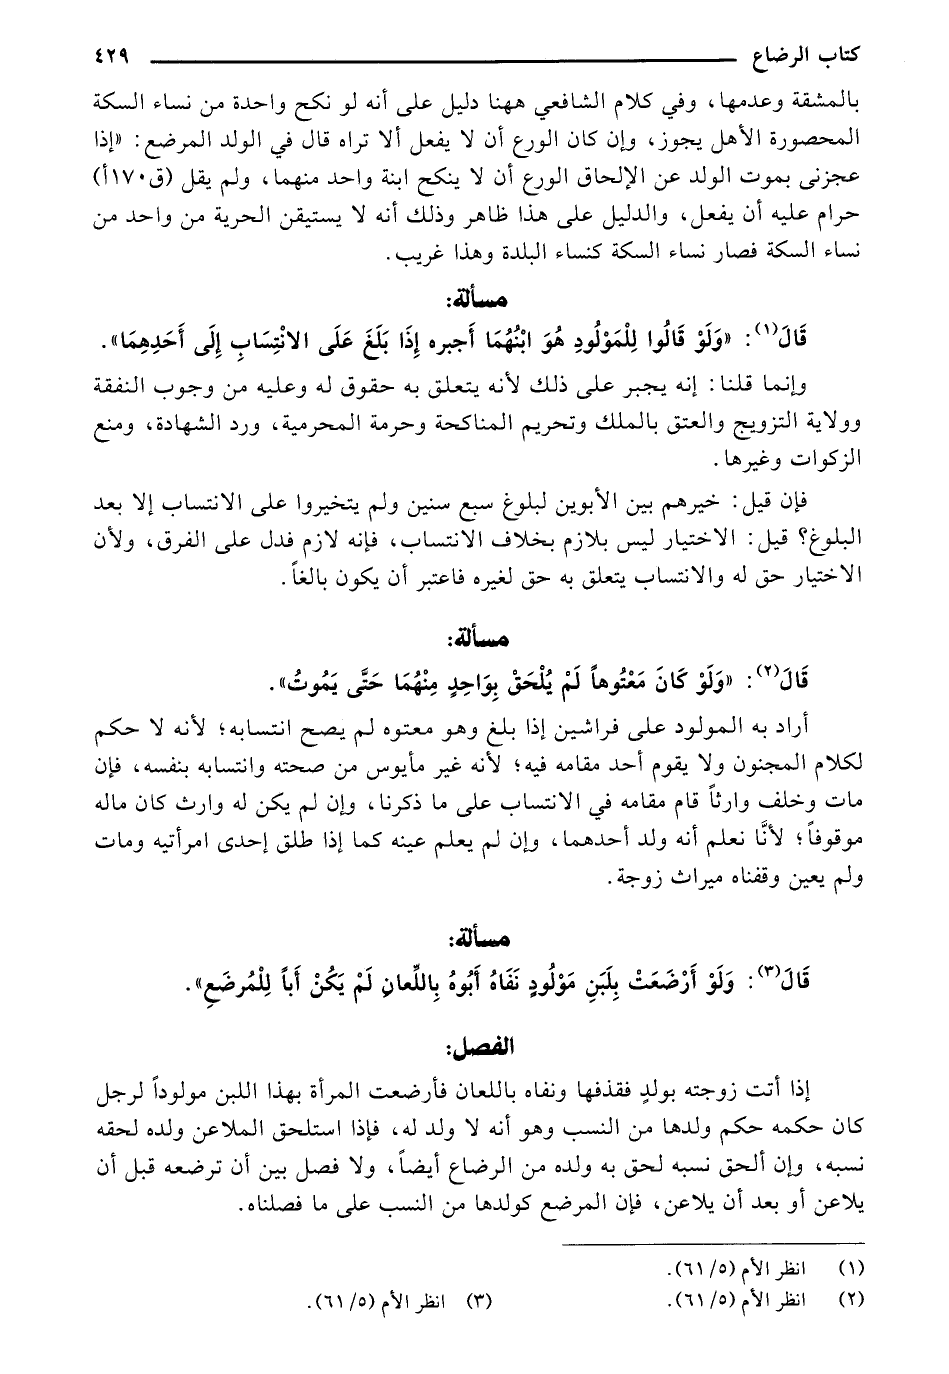 كتاب الرضاع ٤٢٩
بالمشقة وعدمها، وفي كلام الشافعي ههنا دليل على أنه لو نكح واحدة من نساء السكة
المحصورة الأهل يجوز، وإن كان الورع أن لا يفعل ألا تراه قال في الولد المرضع: «إذا
عجزنى بموت الولد عن الإلحاق الورع أن لا ينكح ابنة واحد منهما، ولم يقل (ق١٧٠أ)
حرام عليه أن يفعل، والدليل على هذا ظاهر وذلك أنه لا يستيقن الحرية من واحد من
نساء السكة فصار نساء السكة كنساء البلدة وهذا غريب.
مسألة:
قَالَ(١): «وَلَوْ قَالُوا لِلْمَوْلُودِ هُوَ ابْنُهُمَا أجبره إِذَا بَلَغَ عَلَى الانْتِسَابِ إِلَى أَحَدِهِمَا».
وإنما قلنا: إنه يجبر على ذلك لأنه يتعلق به حقوق له وعليه من وجوب النفقة
وولاية التزويج والعتق بالملك وتحريم المناكحة وحرمة المحرمية، ورد الشهادة، ومنع
الزكوات وغيرها.
فإن قيل: خيرهم بين الأبوين لبلوغ سبع سنين ولم يتخيروا على الانتساب إلا بعد
البلوغ؟ قيل: الاختيار ليس بلازم بخلاف الانتساب، فإنه لازم فدل على الفرق، ولأن
الاختيار حق له والانتساب يتعلق به حق لغيره فاعتبر أن يكون بالغاً.
مسألة:
قَالَ(٢): «وَلَوْ كَانَ مَعْتُوهاً لَمْ يُلْحَقْ بِوَاحِدٍ مِنْهُمَا حَتَّى يَمُوتُ».
أراد به المولود على فراشين إذا بلغ وهو معتوه لم يصح انتسابه؛ لأنه لا حكم
لكلام المجنون ولا يقوم أحد مقامه فيه؛ لأنه غير مأيوس من صحته وانتسابه بنفسه، فإن
مات وخلف وارثاً قام مقامه في الانتساب على ما ذكرنا، وإن لم يكن له وارث كان ماله
موقوفاً؛ لأنَّا نعلم أنه ولد أحدهما، وإن لم يعلم عينه كما إذا طلق إحدى امرأتيه ومات
ولم يعين وقفناه ميراث زوجة.
مسألة:
قَالَ(٣): وَلَوْ أَرْضَعَتْ بِلَبَنِ مَوْلُودٍ نَفَاهُ أَبُوهُ بِاللِّعانِ لَمْ يَكُنْ أَباً لِلْمُرضَعِ».
الفصل:
إذا أتت زوجته بولدٍ فقذفها ونفاه باللعان فأرضعت المرأة بهذا اللبن مولوداً لرجل
كان حكمه حكم ولدها من النسب وهو أنه لا ولد له، فإذا استلحق الملاعن ولده لحقه
نسبه، وإن ألحق نسبه لحق به ولده من الرضاع أيضاً، ولا فصل بين أن ترضعه قبل أن
يلاعن أو بعد أن يلاعن، فإن المرضع كولدها من النسب على ما فصلناه.
(١) انظر الأم (٥/ ٦١).
(٢) انظر الأم (٥/ ٦١). (٣) انظر الأم (٥/ ٦١).